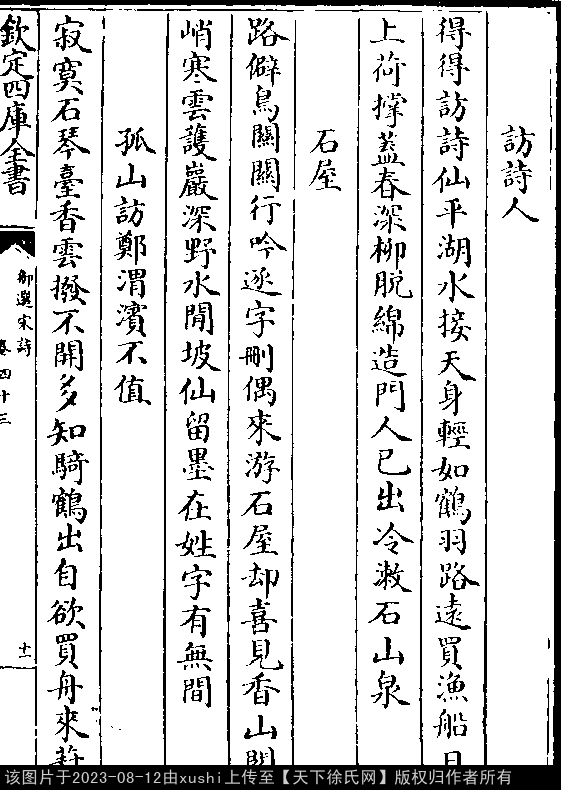 訪詩人
得得訪詩仙平湖水接天身輕如鶴羽路遠買漁船日
上荷撑蓋春深柳脱綿造門人已出冷漱石山泉
石屋
路僻鳥關關行吟逐字刪偶來游石屋却喜見香山閑
峭寒雲護巖深野水閒坡仙留墨在姓字有無間
孤山訪鄭渭濱不值
寂寞石琴臺香雲撥不開多知騎鶴出自欲買舟來
欽定四庫全書
御選宋詩
卷四十三
十一
该图片于2023-08-12由xushi上传至【天下徐氏网】版权归作者所有